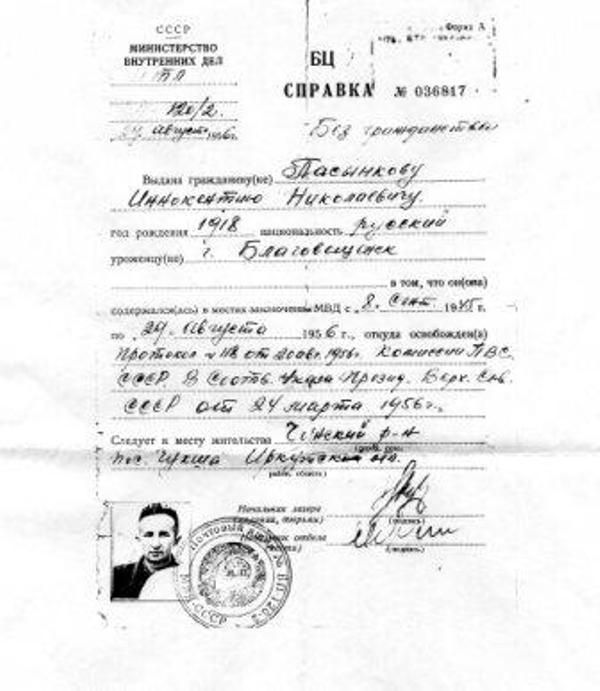 СССР
МИНИСТЕРСТВО
ВНУТРЕННИХ ДЕЛ
ИТЛ
120/2
29 августа 1956 г.
Форма А
БЦ
СПРАВКА № 036817
Без гражданства
Выдана гражданину(ке) Пасынкову
Иннокентию Николаевичу
год рождения 1918 национальность русский
уроженцу(ке) г. Благовещенск
в том, что он(она)
содержался(ась) в местах заключения МВД с „8. Сент. 1945 г.
по 29. Августа 1956 г., откуда освобожден(а)
Протокол от 20 авг. 1956г. Комиссии ПВС.
СССР в соотв. Указа Презид. Верх. Сов.
СССР от 24 марта 1956 г.,
Следует к месту жительства Чунский р-н
пос. Чукша Иркутской обл.
Начальник лагеря
(подпись)
Начальник отдела
(подпись)
Почтовый ящик
СССР